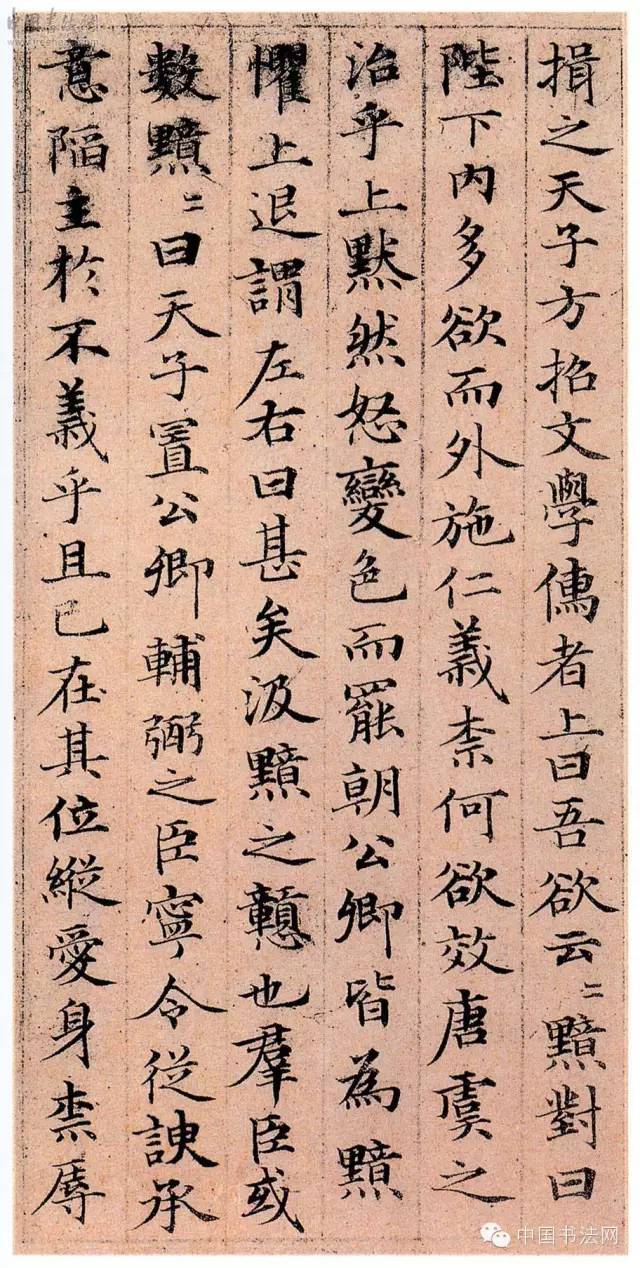 揖之天子方招文學儒者上曰吾欲云〻黯對曰
陛下內多欲而外施仁義柰何欲效唐虞之
治乎上默然怒變色而罷朝公卿皆為黯
懼上退謂左右曰甚矣汲黯之戇也羣臣或
數黯〻曰天子置公卿輔弼之臣寧令從諛承
意陷主於不義乎且已在其位縱愛身柰辱
中国书法网